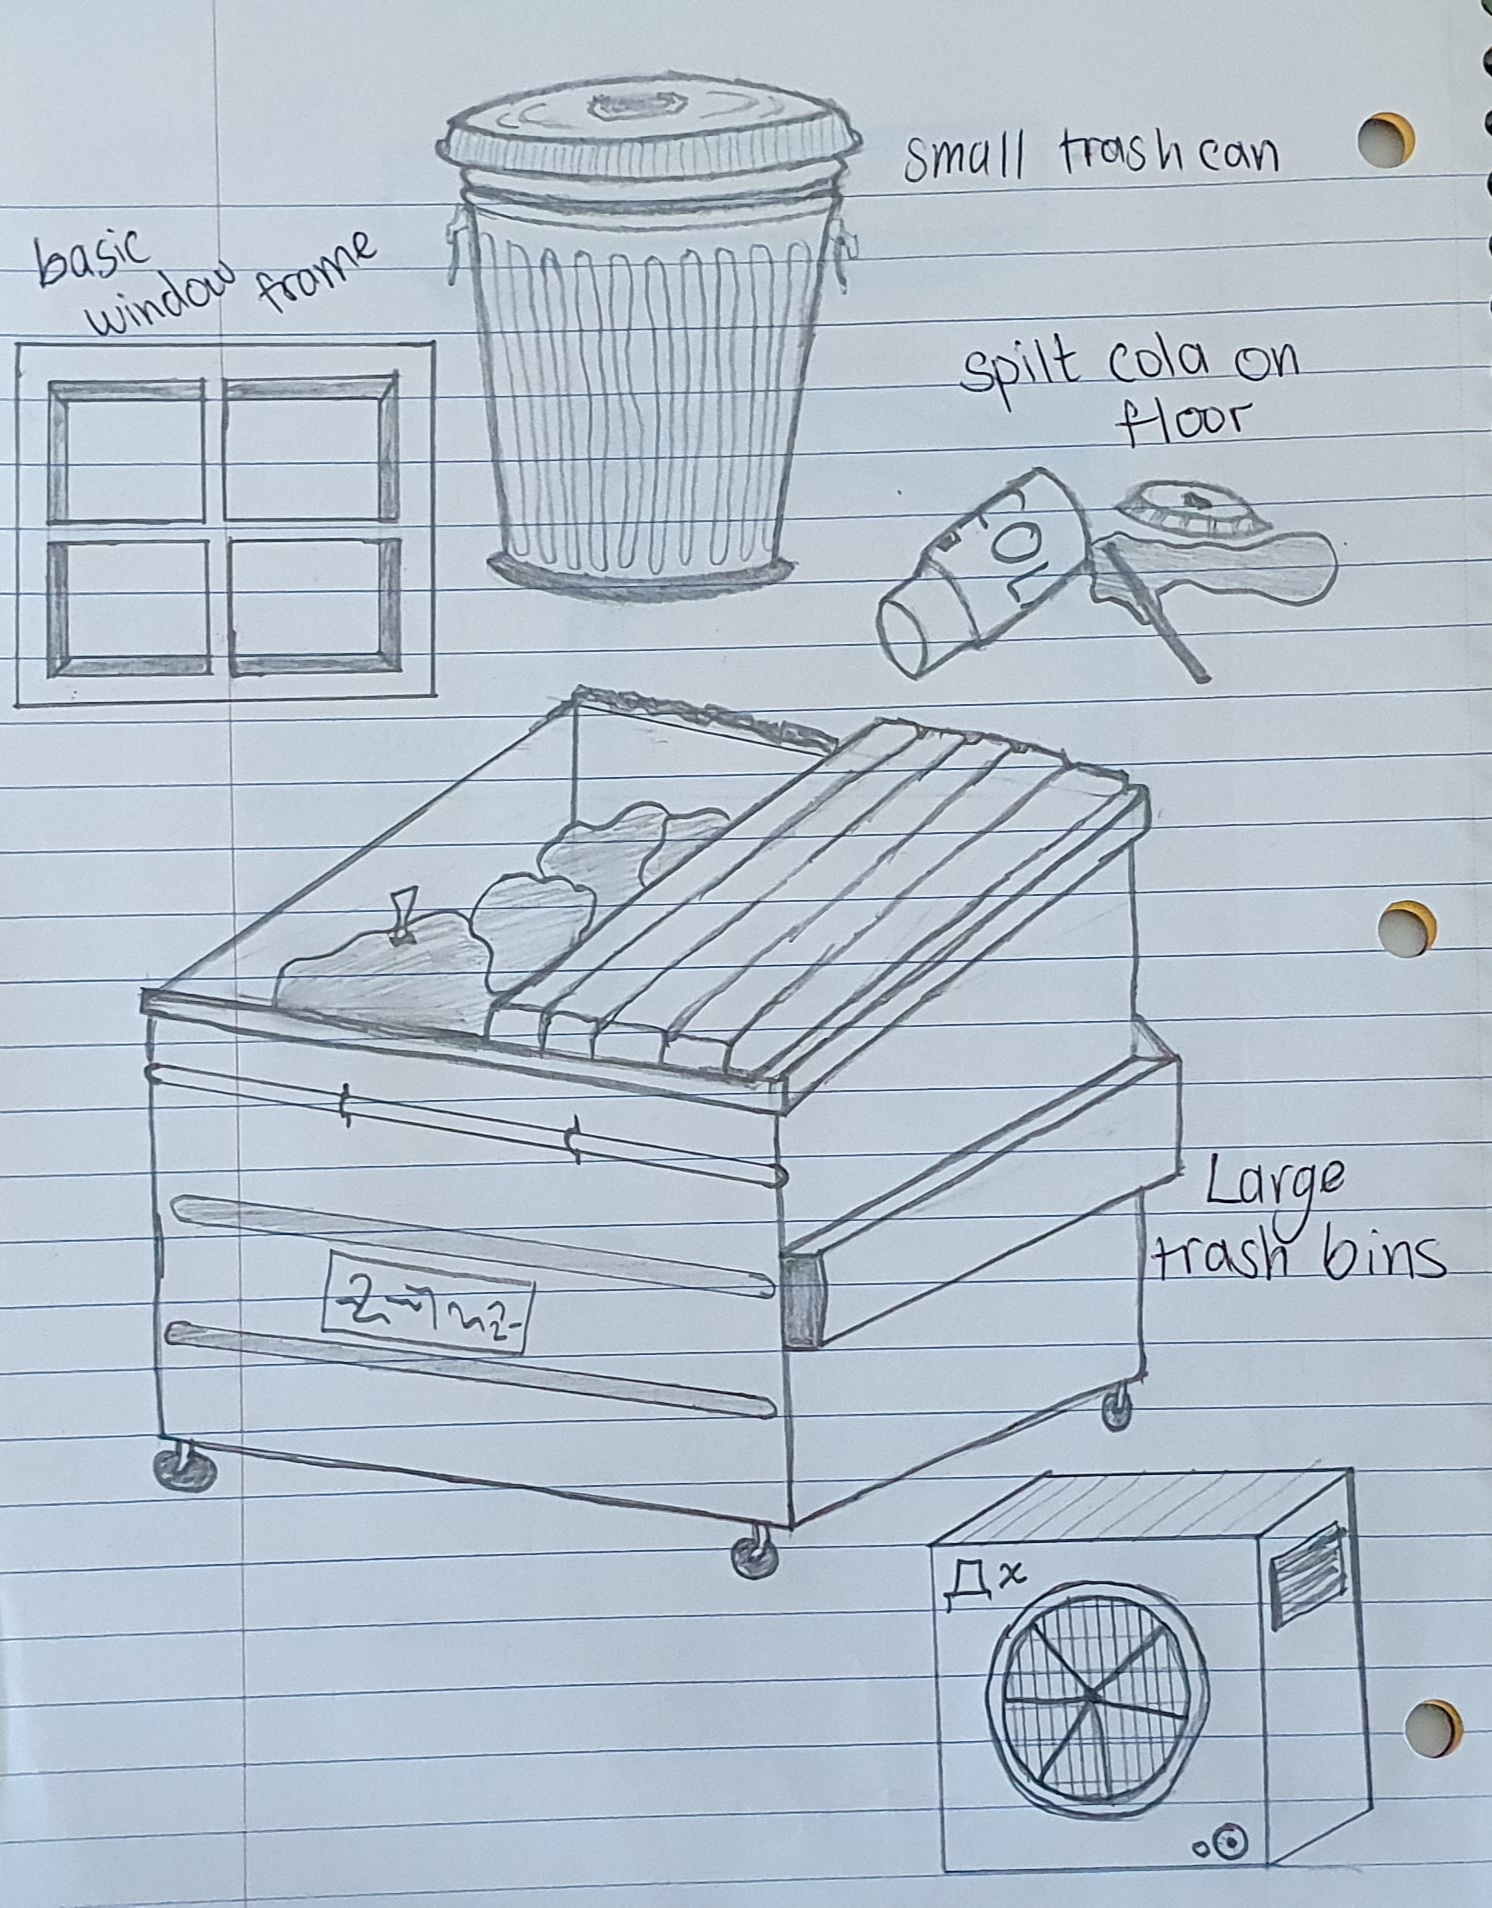 small trash can
basic
window frame
spilt cola on
floor
OL
Large
trash bins
Дx